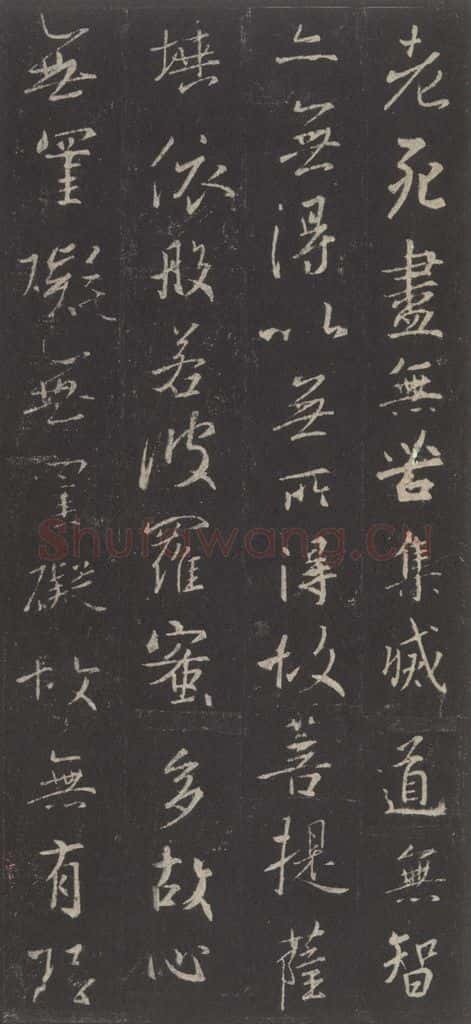 老死盡無苦集滅道無智
亦無得以無所得故菩提薩
埵依般若波羅蜜多故心
無罣礙無罣礙故無有恐
Shufawang.CN